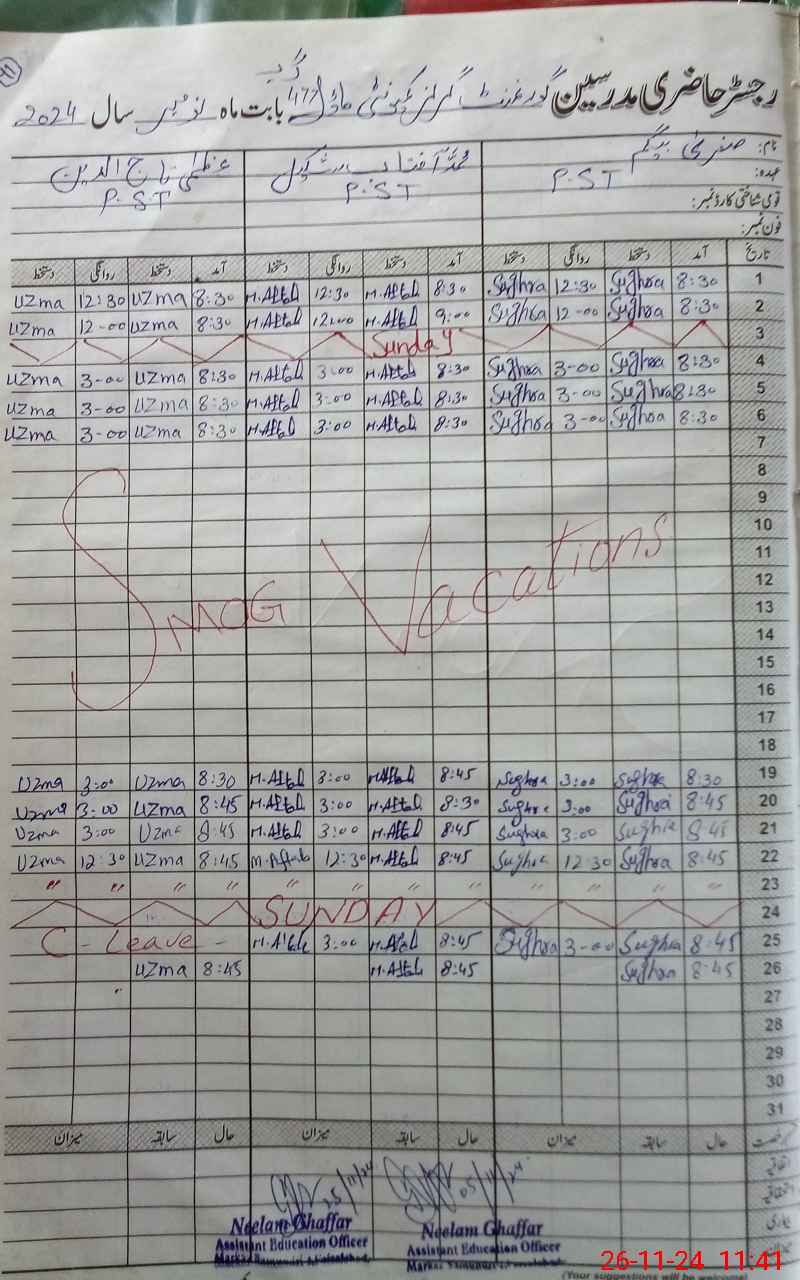 11
رجسٹر حاضری مدرسین گورنمنٹ گرلز کمیونٹی ماڈل 177 گ ب بابت ماہ نومبر سال 2024
نام: صغریٰ بیگم محمد آفتاب عظمیٰ تاج الدین
عہدہ: P.S.T P.S.T P.S.T
قومی شناختی کارڈ نمبر:
فون نمبر:
تاریخ آمد دستخط روانگی دستخط آمد دستخط روانگی دستخط آمد دستخط روانگی دستخط
UZma 12:30 UZma 8:30 M.Aftab 12:30 M.Aftab 8:30 Sughra 12:30 Sughra 8:30 1
UZma 12-00 UZma 8:30 M.Aftab 12:00 M.Aftab 9:00 Sughra 12-00 Sughra 8:30 2
Sunday 3
UZma 3-00 UZma 8:30 M.Aftab 3:00 M.Aftab 8:30 Sughra 3-00 Sughra 8:30 4
UZma 3-00 UZma 8:30 M.Aftab 3:00 M.Aftab 8:30 Sughra 3-00 Sughra 8:30 5
UZma 3-00 UZma 8:30 M.Aftab 3:00 M.Aftab 8:30 Sughra 3-00 Sughra 8:30 6
7
8
9
10
11
12
SMOG Vacations
13
14
15
16
17
18
Uzma 3:00 Uzma 8:30 M.Aftab 3:00 M.Aftab 8:45 Sughra 3:00 Sughra 8:30 19
Uzma 3:00 UZma 8:45 M.Aftab 3:00 M.Aftab 8:30 Sughra 3:00 Sughra 8:45 20
Uzma 3:00 UZma 8:45 M.Aftab 3:00 M.Aftab 8:45 Sughra 3:00 Sughra 8:45 21
Uzma 12:30 UZma 8:45 M.Aftab 12:30 M.Aftab 8:45 Sughra 12:30 Sughra 8:45 22
" " " " " " " " " " " " 23
SUNDAY 24
C - Leave - M.Aftab 3:00 M.Aftab 8:45 Sughra 3-00 Sughra 8:45 25
UZma 8:45 M.Aftab 8:45 Sughra 8:45 26
27
28
29
30
31
رخصت حال سابقہ میزان حال سابقہ میزان حال سابقہ میزان
اتفاقیہ
استحقاقیہ
بیماری
25/11/24 05/11/24
Neelam Ghaffar Neelam Ghaffar
Assistant Education Officer Assistant Education Officer
Markaz Markaz
(Your suggestions will be
26-11-24 11:41